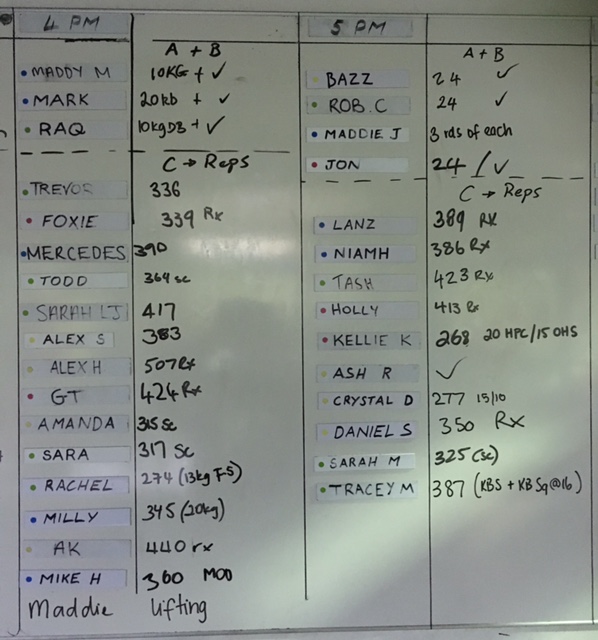 4 PM
A + B
MADDY M 10KG + ✓
MARK 20kb + ✓
RAQ 10kgDB + ✓
C → Reps
TREVOR 336
FOXIE 339 Rx
MERCEDES 390
TODD 364 sc
SARAH LJ 417
ALEX S 383
ALEX H 507 Rx
GT 424 Rx
AMANDA 315 Sc
SARA 317 Sc
RACHEL 274 (13kg F-S)
MILLY 345 (20kg)
AK 440 rx
MIKE H 360 MOD
Maddie lifting
5 PM
A + B
BAZZ 24 ✓
ROB.C 24 ✓
MADDIE J 3 rds of each
JON 24 / ✓
C → Reps
LANZ 389 RX
NIAMH 386 Rx
TASH 423 Rx
HOLLY 413 Rx
KELLIE K 268 20 HPC/15 OHS
ASH R ✓
CRYSTAL D 277 15/10
DANIEL S 350 Rx
SARAH M 325 (sc)
TRACEY M 387 (KBS + KB Sq @16)